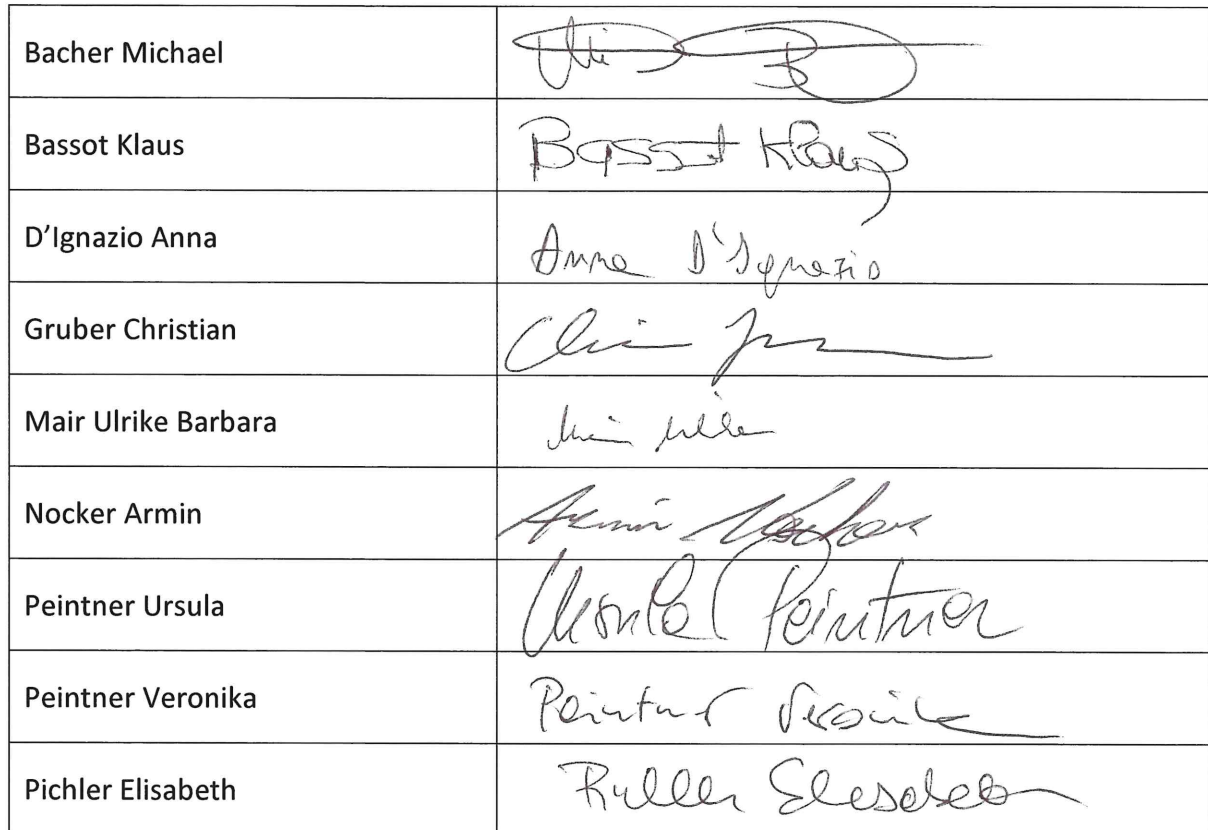 Bacher Michael
Bassot Klaus Bassot Klaus
D'Ignazio Anna Anna D'Ignazio
Gruber Christian
Mair Ulrike Barbara
Nocker Armin Armin Nocker
Peintner Ursula Ursula Peintner
Peintner Veronika Peintner Veronika
Pichler Elisabeth